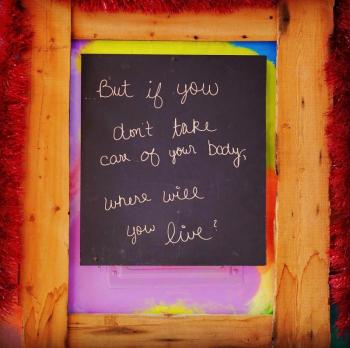 But if you
don't take
care of your body,
where will
you live?